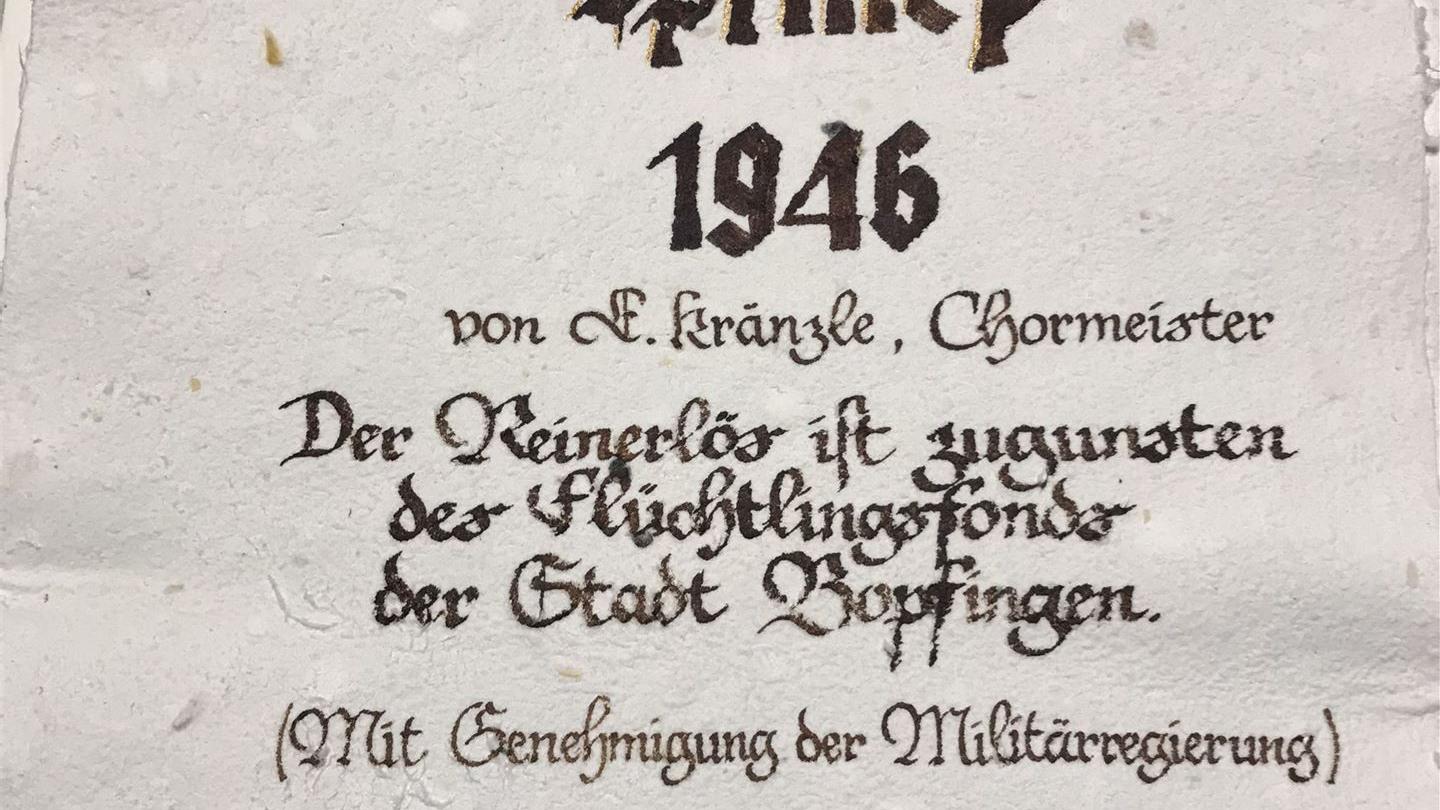 1946
von E. Kränzle, Chormeister
Der Reinerlös ist zugunsten
des Flüchtlingsfonds
der Stadt Bopfingen.
(Mit Genehmigung der Militärregierung)